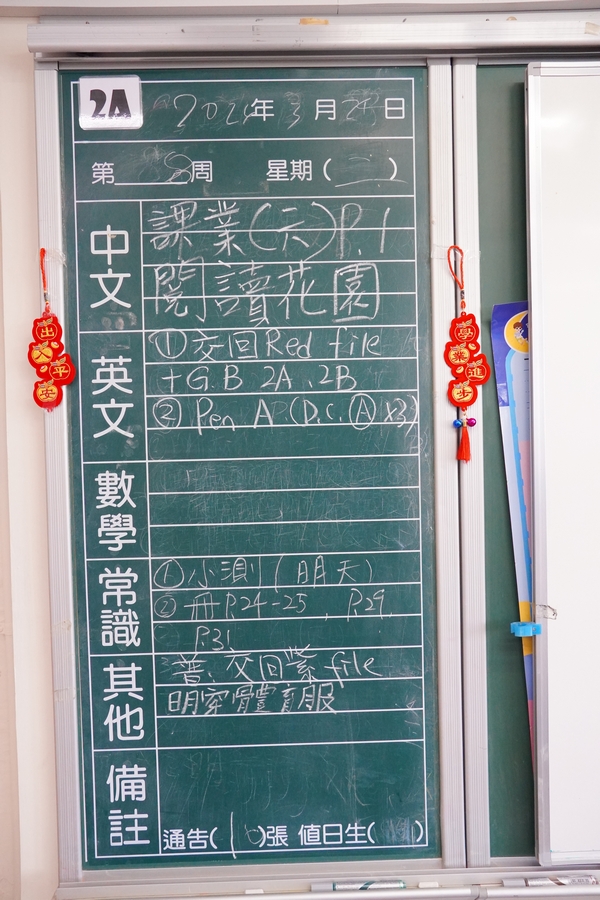 2A
2024年3月 日
第 周 星期( )
中文
課業(六)P.1
閱讀花園
英文
①交回Red file
+G.B 2A、2B
② Pen A (D.C. Ⓐ x3)
數學
常識
①小測(明天)
②冊P.24-25、P.29、
P.31
其他
普：交回紫file
明穿體育服
備註
通告( )張 值日生( )
出入平安
學業進步